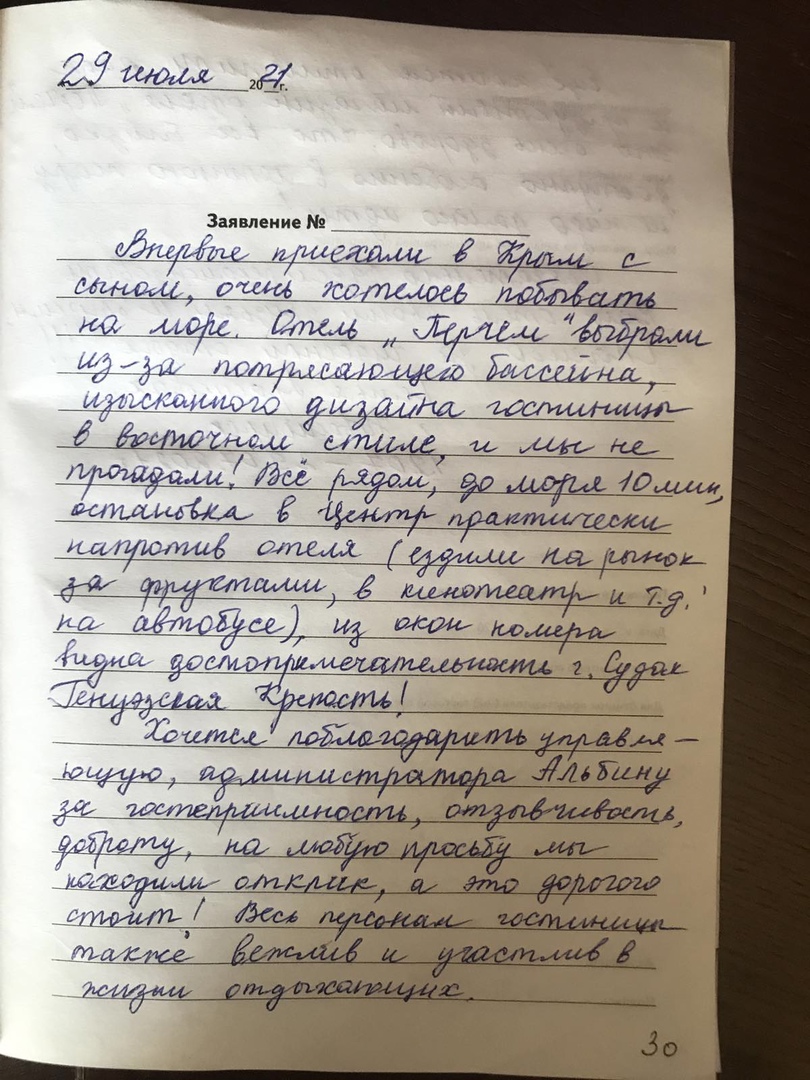 29 июля 2021 г.
Заявление №
Впервые приехали в Крым с
сыном, очень хотелось побывать
на море. Отель „Перчем" выбрали
из-за потрясающего бассейна,
изысканного дизайна гостиницы
в восточном стиле, и мы не
прогадали! Всё рядом, до моря 10 мин,
остановка в Центр практически
напротив отеля (ездили на рынок
за фруктами, в кинотеатр и т.д.
на автобусе), из окон номера
видна достопримечательность г. Судак
Генуэзская Крепость!
Хочется поблагодарить управля-
ющую, администратора Альбину
за гостеприимность, отзывчивость,
доброту, на любую просьбу мы
находили отклик, а это дорогого
стоит! Весь персонал гостиницы
также вежлив и участлив в
жизни отдыхающих.
30